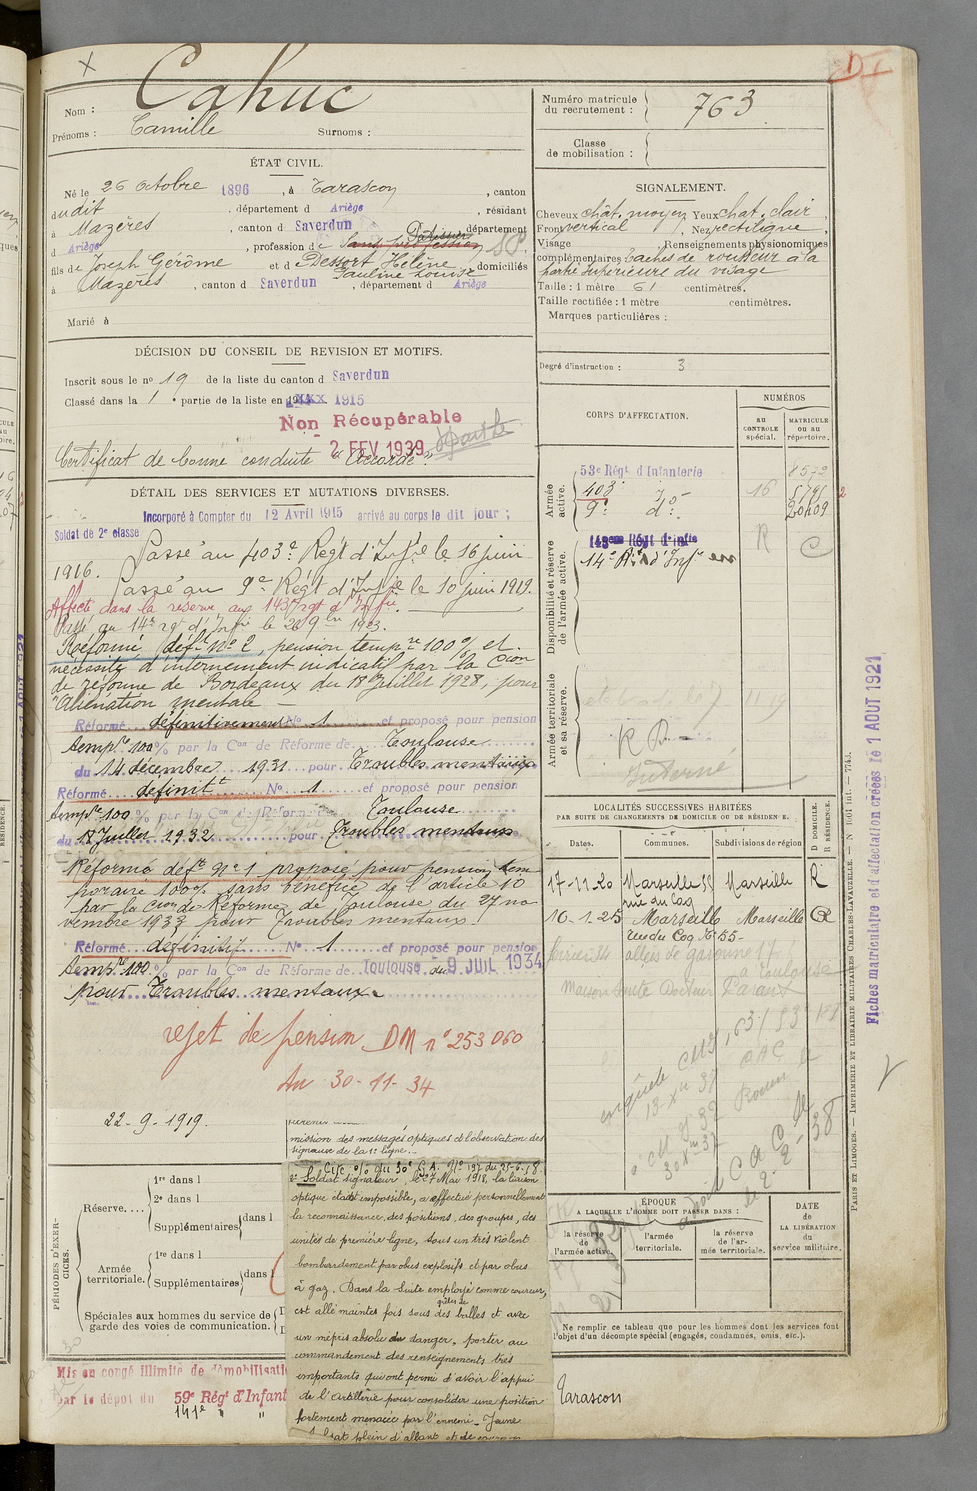 Nom : Cahuc
Prénoms : Camille Surnoms :
ÉTAT CIVIL.
Né le 26 Octobre 1896, à Tarascon, canton
dudit, département d Ariège, résidant
à Mazères, canton d Saverdun, département
d Ariège, profession de Sans profession Pâtissier SP
fils de Joseph Gérôme et de Dessort Hélène, domiciliés
Pauline Louise
à Mazères, canton d Saverdun, département d Ariège
Marié à
DÉCISION DU CONSEIL DE REVISION ET MOTIFS.
Inscrit sous le no 19 de la liste du canton d Saverdun
Classé dans la 1e partie de la liste en 1915
Non Récupérable
2 FEV 1939
Certificat de bonne conduite "Accordé".
DÉTAIL DES SERVICES ET MUTATIONS DIVERSES.
Incorporé à Compter du 12 Avril 1915 arrivé au corps le dit jour ;
Soldat de 2e classe
Passé au 403e Régt d'Infie le 16 juin
1916.
Passé au 9e Régt d'Infie le 10 juin 1919.
Affecté dans la réserve au 143e rgt d'Infie.
Passé au 14e rgt d'Infie le
Réformé déft no 2, pension tempre 100% et
nécessité d'internement indicatif par la Cion
de réforme de Bordeaux du 18 Juillet 1928, pour
"Aliénation mentale
Réformé définitivement No 1 et proposé pour pension
tempre 100% par la Con de Réforme de Toulouse
du 14 décembre 1931 pour Troubles mentaux
Réformé définitt No 1 et proposé pour pension
tempre 100% par la Con de Réforme de Toulouse
du 18 Juillet 1932 pour Troubles mentaux
Réformé deft no 1 proposé pour pension tem
poraire 100% sans bénéfice de l'article 10
par la Cion de Réforme de Toulouse du 27 no
vembre 1933 pour Troubles mentaux.
Réformé définitif No 1 et proposé pour pension
tempre 100% par la Con de Réforme de Toulouse du 9 JUIL 1934
pour Troubles mentaux.
rejet de pension DM no 253 060
du 30-11-34
22-9-1919.
mission des messages optiques et l'observation des
signaux de la 1e ligne.
Soldat signaleur, le 27 Mai 1918, la liaison
optique étant impossible, a effectué personnellement
la reconnaissance, des positions, des groupes, des
unités de première ligne, sous un très violent
bombardement par obus explosifs et par obus
à gaz. Dans la suite employé comme coureur,
est allé maintes fois sous des balles et avec
un mépris absolu du danger, porter au
commandement des renseignements très
importants qui ont permi d'avoir l'appui
de l'artillerie pour consolider une position
fortement menacée par l'ennemi. Jeune
plein d'allant et de
PÉRIODES D'EXERCICES.
Réserve.... 1re dans l
2e dans l
Supplémentaires dans l
Armée territoriale. 1re dans l
Supplémentaires dans l
Spéciales aux hommes du service de
garde des voies de communication.
Mis en congé illimité de démobilisati
par le dépôt du 59e Régt d'Infant
141e " "
D I
Numéro matricule
du recrutement : 763
Classe
de mobilisation :
SIGNALEMENT.
Cheveux chât. moyen Yeux chat. clair
Front vertical, Nez rectiligne,
Visage, Renseignements physionomiques
complémentaires taches de rousseur à la
partie supérieure du visage
Taille : 1 mètre 61 centimètres.
Taille rectifiée : 1 mètre centimètres.
Marques particulières :
Degré d'instruction : 3
CORPS D'AFFECTATION.
NUMÉROS
AU CONTROLE spécial.
MATRICULE ou au répertoire.
Armée active.
53e Régt d'Infanterie 8572
403 do 16
9e do 20409
Disponibilité et réserve
de l'armée active.
143eme Régt d'Infie R
14e Rt d'Infie
Armée territoriale
et sa réserve.
Interné
LOCALITÉS SUCCESSIVES HABITÉES
PAR SUITE DE CHANGEMENTS DE DOMICILE OU DE RÉSIDENCE.
D DOMICILE.
R RÉSIDENCE.
Dates. Communes. Subdivisions de région
17-11-20 Marseille 55 Marseille R
rue du Coq
10-1-25 Marseille Marseille R
rue du Coq No 55
allées de garonne
à Toulouse
Maison Santé Docteur
enquête
ÉPOQUE
A LAQUELLE L'HOMME DOIT PASSER DANS :
la réserve
de
l'armée active.
l'armée
territoriale.
la réserve
de l'ar-
mée territoriale.
DATE
de
LA LIBÉRATION
du
service militaire.
Ne remplir ce tableau que pour les hommes dont les services font
l'objet d'un décompte spécial (engagés, condamnés, omis, etc.).
Tarascon
Fiches matriculaire et d'affectation créées le 1 AOUT 1921
PARIS ET LIMOGES. — IMPRIMERIE ET LIBRAIRIE MILITAIRES CHARLES-LAVAUZELLE. — N 1001 int. — 7743.